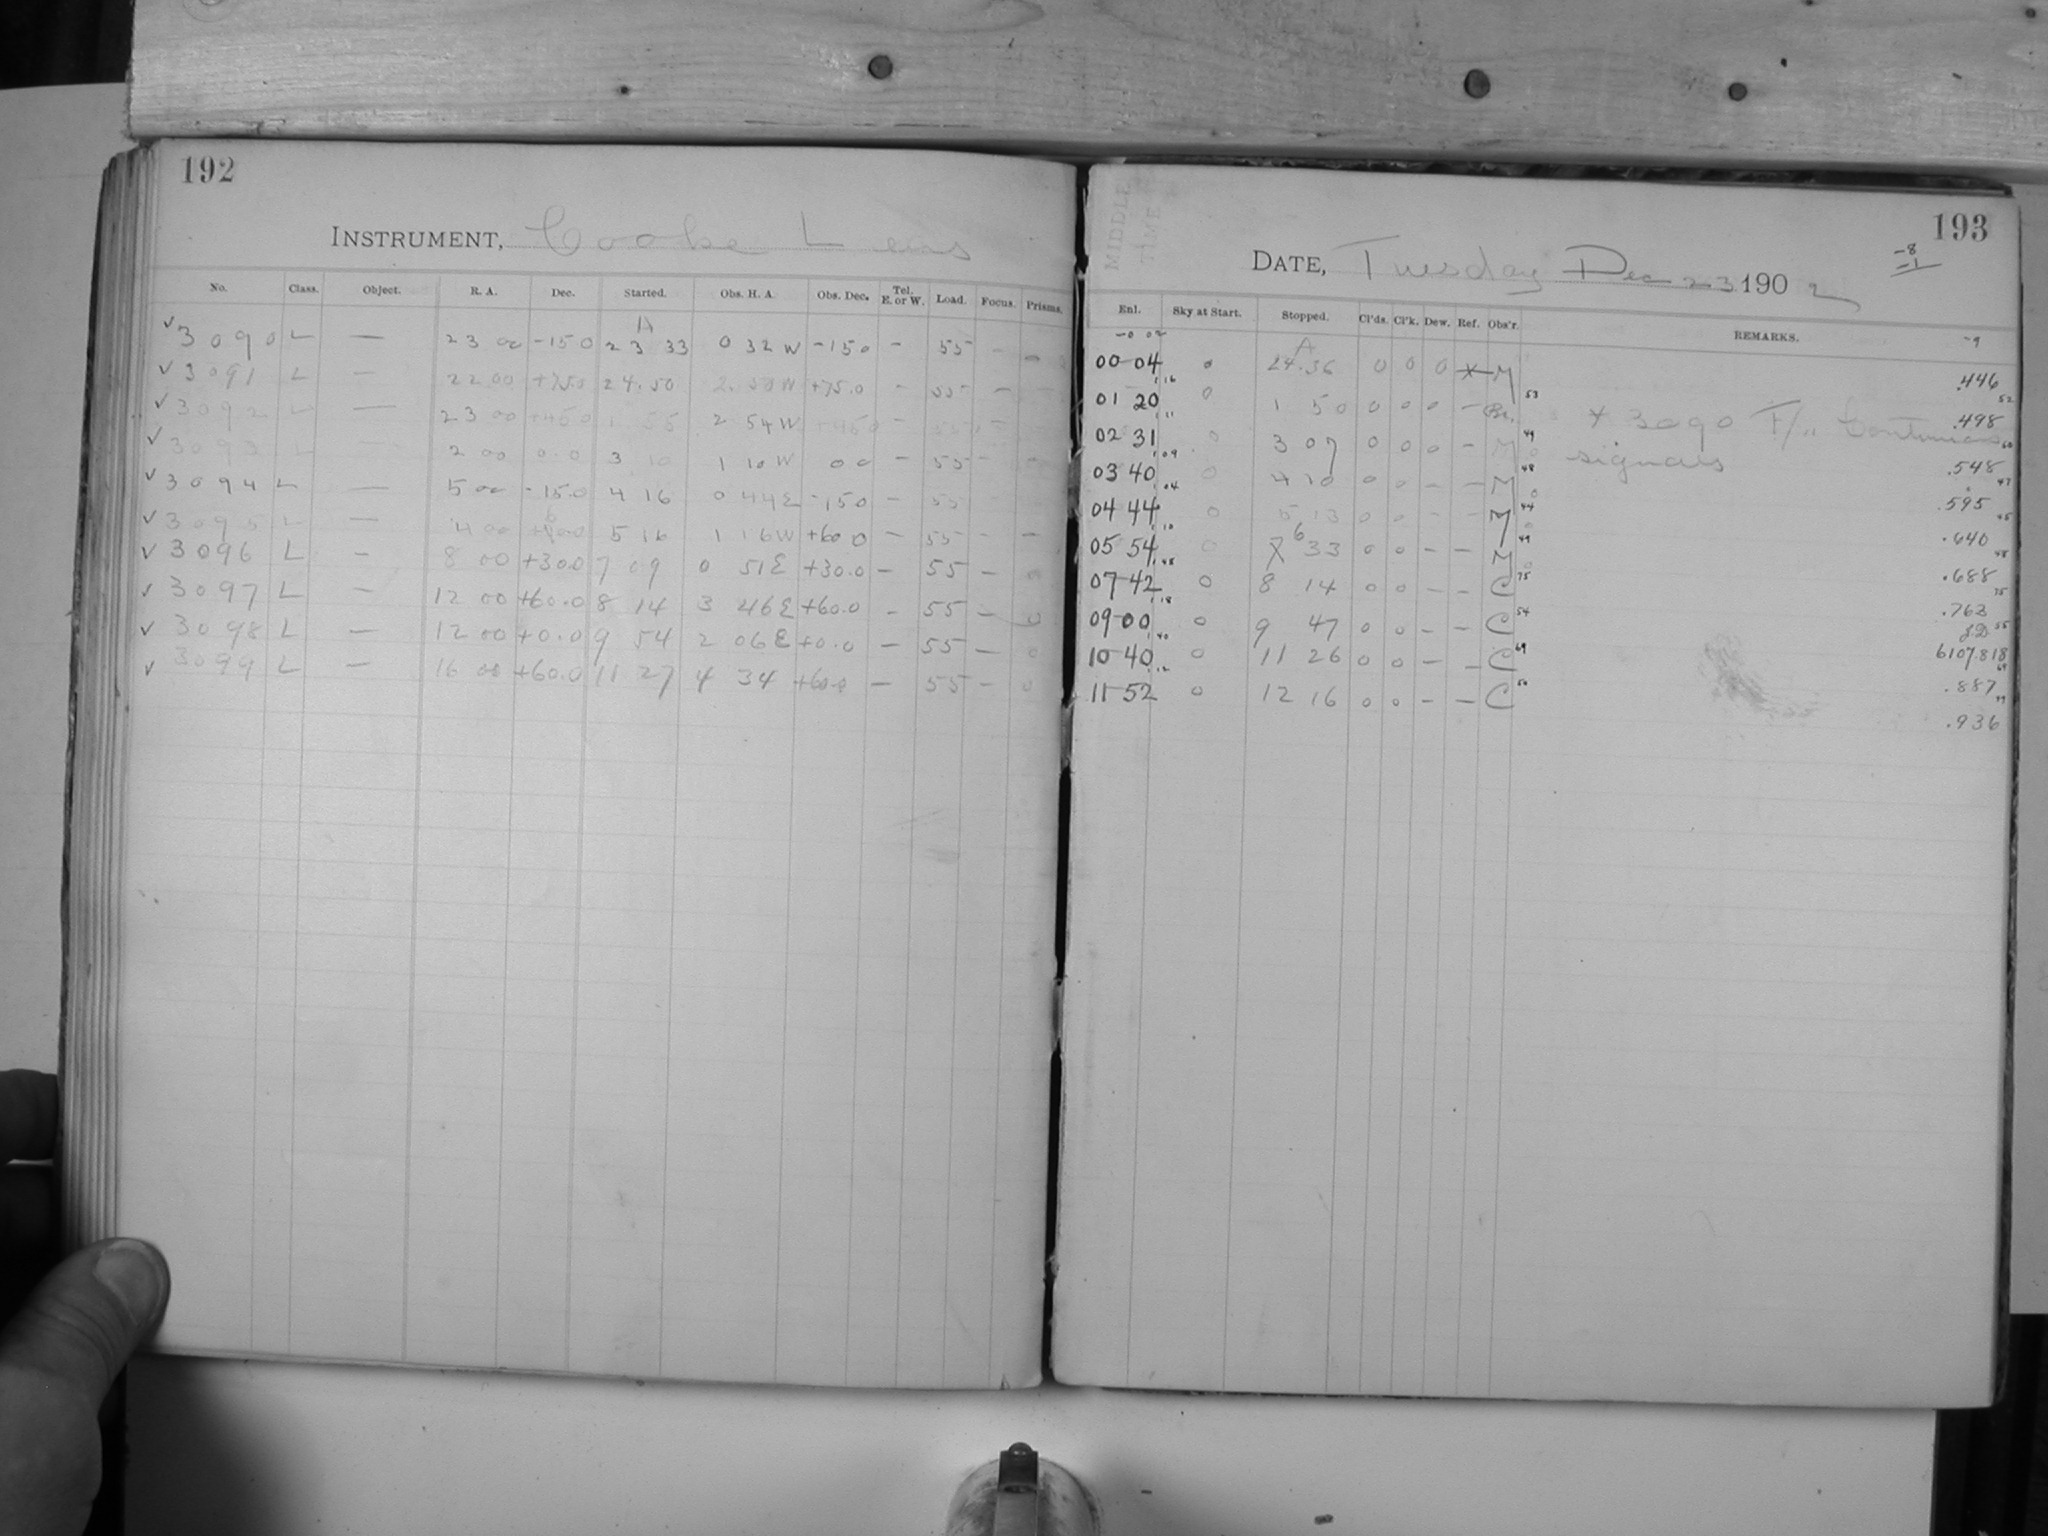 192
INSTRUMENT, Cooke Lens
No. Class. Object. R. A. Dec. Started. Obs. H. A. Obs. Dec. Tel. E. or W. Load. Focus. Prisms.
A
✓ 3090 L — 23 00 -15 0 23 33 0 32 W -15 0 - 55 - -
✓ 3091 L — 22 00 +75.0 24.50 2.50 W +75.0 - 55 -
✓ 3092 L — 23 00 +45 0 1 55 2 54 W +45 0 - 55 -
✓ 3093 L — 2 00 0.0 3 10 1 10 W 0 0 - 55 - -
✓ 3094 L — 5 00 -15.0 4 16 0 44 E -15.0 - 55
✓ 3095 L — 4 00 5 16 1 16 W +60 0 - 55 - -
✓ 3096 L — 8 00 +30.0 7 09 0 51 E +30.0 - 55 - 0
✓ 3097 L — 12 00 +60.0 8 14 3 46 E +60.0 - 55 - 0
✓ 3098 L — 12 00 +0.0 9 54 2 06 E +0.0 - 55 - 0
✓ 3099 L — 16 00 +60.0 11 27 4 34 +60.0 - 55 - 0
MIDDLE
TIME
193
-8
-1
DATE, Tuesday Dec 23 1902
Enl. Sky at Start. Stopped. Cl'ds. Cl'k. Dew. Ref. Obs'r. REMARKS.
-0 02 A -9
00 04 0 24.36 0 0 0 X M .446
1 16 53 52
01 20 0 1 50 0 0 0 - * 3090 F/. Continuous .498
1 11 49 50
02 31 0 3 07 0 0 0 - M signals .548
1 09 48 47
03 40 0 4 10 0 0 - - M .595
1 04 44 45
04 44 0 5 13 0 0 - - M .640
1 10 49 48
05 54 0 6 33 0 0 - - M .688
1 48 75 75
07 42 0 8 14 0 0 - - C .763
1 18 54 JD 55
09 00 0 9 47 0 0 - - C 6107.818
1 40 69 69
10 40 0 11 26 0 0 - - C .887
1 12 50 49
11 52 0 12 16 0 0 - - C .936